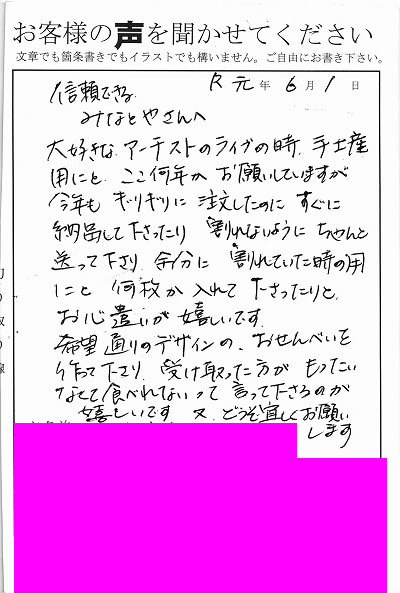 お客様の声を聞かせてください
文章でも箇条書きでもイラストでも構いません。ご自由にお書き下さい。
R 元 年 6 月 1 日
信頼できる
みなとやさんへ
大好きな アーチストのライブの時、手土産
用にと、ここ何年か お願いしていますが
今年も ギリギリに 注文したのに すぐに
納品して下さったり 割れないように ちゃんと
送って下さり 余分に 割れていた時の用
にと 何枚か 入れて 下さったりと、
お心遣いが 嬉しいです。
希望通りのデザインの、おせんべいを
作って下さり、受け取った方が もったい
なくて食べれないって 言って下さるのが
嬉しいです 又、どうぞ宜しくお願い
します